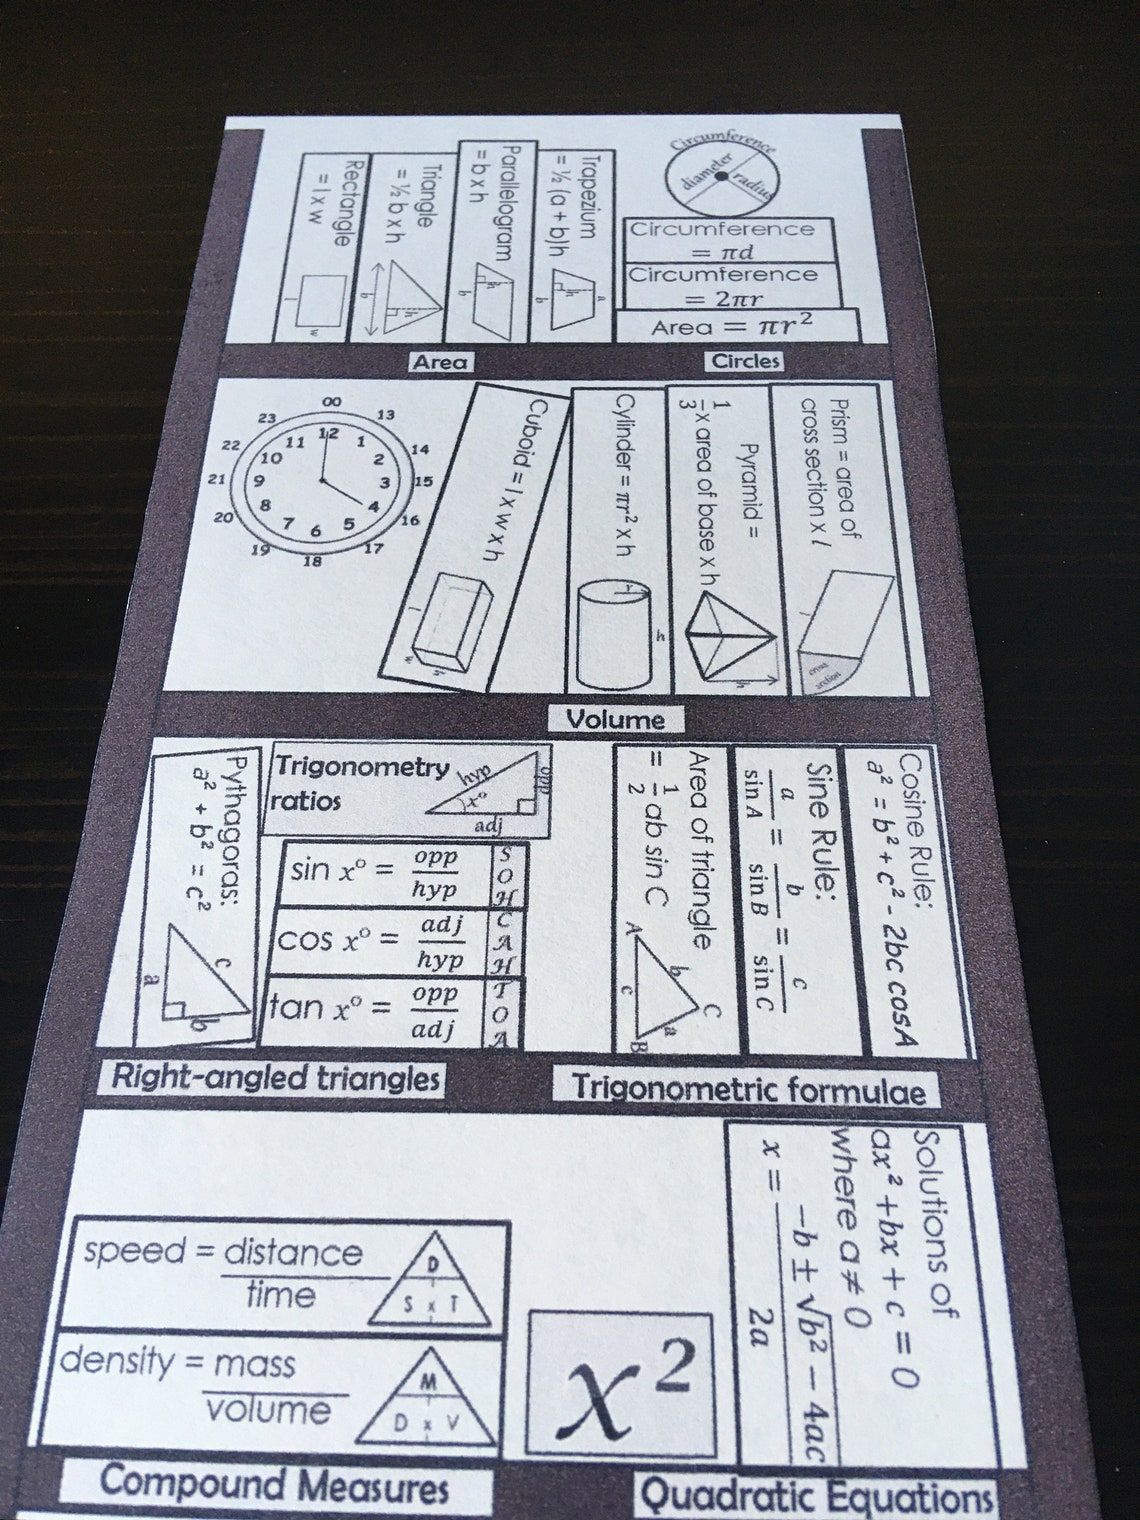 Rectangle
= l x w
l
w
Triangle
= ½ b x h
b
h
Parallelogram
= b x h
h
b
Trapezium
= ½ (a + b)h
a
h
b
Circumference
diameter
radius
Circumference
= πd
Circumference
= 2πr
Area = πr²
Area
Circles
00
13
14
15
16
17
18
19
20
21
22
23
12
1
2
3
4
5
6
7
8
9
10
11
Cuboid = l x w x h
l
w
h
Cylinder = πr² x h
r
h
Pyramid =
1/3 x area of base x h
h
Prism = area of
cross section x l
l
cross
section
Volume
Pythagoras:
a² + b² = c²
c
a
b
Trigonometry
ratios
hyp
opp
x°
adj
sin x° = opp/hyp
S
O
H
cos x° = adj/hyp
C
A
H
tan x° = opp/adj
T
O
A
Area of triangle
= 1/2 ab sin C
A
b
C
c
a
B
Sine Rule:
a/sin A = b/sin B = c/sin C
Cosine Rule:
a² = b² + c² - 2bc cosA
Right-angled triangles
Trigonometric formulae
speed = distance
time
D
S x T
density = mass
volume
M
D x V
x²
Solutions of
ax² + bx + c = 0
where a ≠ 0
x = -b ± √b² − 4ac
2a
Compound Measures
Quadratic Equations